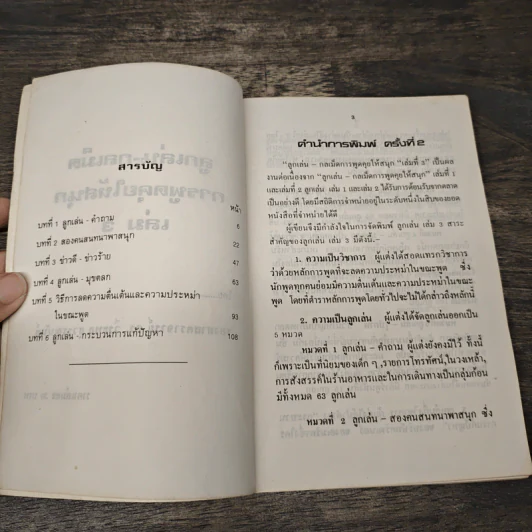 สารบัญ
หน้า
บทที่ 1 ลูกเล่น - คำถาม 6
บทที่ 2 สองคนสนทนาพาสนุก 22
บทที่ 3 ข่าวดี - ข่าวร้าย 47
บทที่ 4 ลูกเล่น - มุขตลก 63
บทที่ 5 วิธีการลดความตื่นเต้นและความประหม่า
ในขณะพูด 93
บทที่ 6 ลูกเล่น - กระบวนการแก้ปัญหา 108
คำนำการพิมพ์ ครั้งที่ 2
"ลูกเล่น - กลเม็ดการพูดคุยให้สนุก "เล่มที่ 3" เป็นผล
งานต่อเนื่องจาก "ลูกเล่น - กลเม็ดการพูดคุยให้สนุก" เล่มที่ 1
และเล่มที่ 2 ลูกเล่น เล่ม 1 และเล่ม 2 ได้รับการต้อนรับจากตลาด
เป็นอย่างดี โดยมีสถิติการจำหน่ายอยู่ในระดับหนึ่งในสิบของยอด
หนังสือที่จำหน่ายได้ดี
ผู้เขียนจึงมีกำลังใจในการจัดพิมพ์ ลูกเล่น เล่ม 3 สาระ
สำคัญของลูกเล่น เล่ม 3 มีดังนี้.-
1. ความเป็นวิชาการ ผู้แต่งได้สอดแทรกวิชาการ
ว่าด้วยหลักการพูดที่จะลดความประหม่าในขณะพูด ซึ่ง
นักพูดทุกคนย่อมมีความตื่นเต้นและความประหม่าในขณะ
พูด โดยที่ตำราหลักการพูดโดยทั่วไปจะไม่ได้กล่าวถึงหลักนี้
2. ความเป็นลูกเล่น ผู้แต่งได้จัดลูกเล่นออกเป็น
5 หมวด
หมวดที่ 1 ลูกเล่น - คำถาม ผู้แต่งยังคงมีไว้ ทั้งนี้
ก็เพราะเป็นที่นิยมของเด็ก ๆ , รายการโทรทัศน์, ในวงเหล้า,
การสังสรรค์ในร้านอาหารและในการเดินทางเป็นกลุ่มก้อน
มีทั้งหมด 63 ลูกเล่น
หมวดที่ 2 ลูกเล่น - สองคนสนทนาพาสนุก ซึ่ง